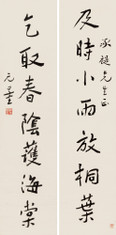 及時小雨放桐葉
承誕先生正
乞取春陰護海棠
元墨